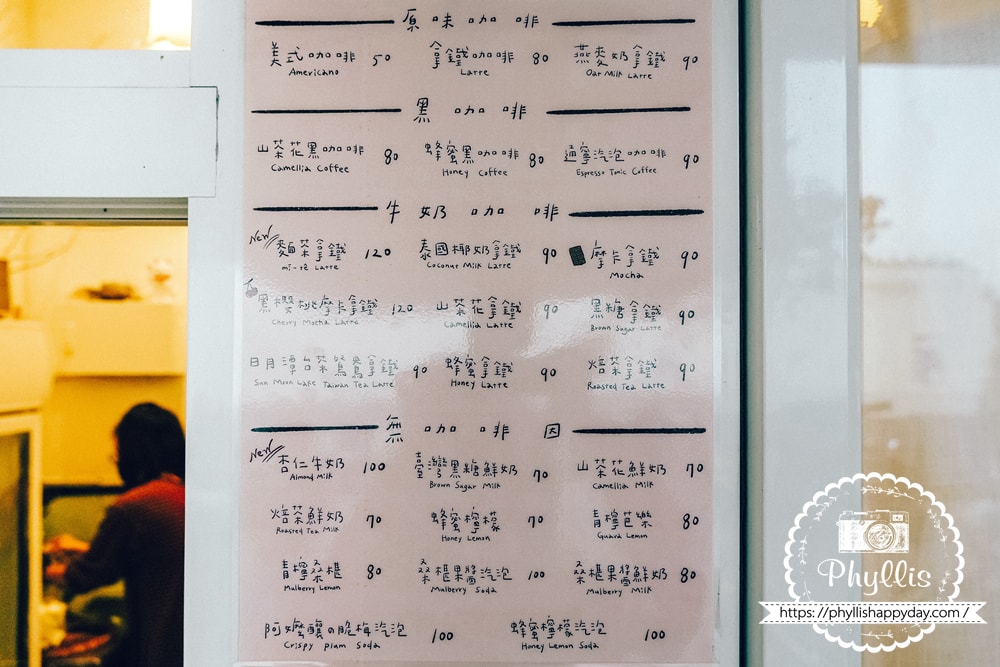 原味咖啡
美式咖啡 50 拿鐵咖啡 80 燕麥奶拿鐵 90
Americano Latte Oat Milk Latte
黑咖啡
山茶花黑咖啡 80 蜂蜜黑咖啡 80 通寧汽泡咖啡 90
Camellia Coffee Honey Coffee Espresso Tonic Coffee
牛奶咖啡
New 麵茶拿鐵 120 泰國椰奶拿鐵 90 摩卡拿鐵 90
mī-tê Latte Coconut Milk Latte Mocha
黑櫻桃摩卡拿鐵 120 山茶花拿鐵 90 黑糖拿鐵 90
Cherry Mocha Latte Camellia Latte Brown Sugar Latte
日月潭台茶鴛鴦拿鐵 90 蜂蜜拿鐵 90 焙茶拿鐵 90
Sun Moon Lake Taiwan Tea Latte Honey Latte Roasted Tea Latte
無咖啡因
New 杏仁牛奶 100 臺灣黑糖鮮奶 70 山茶花鮮奶 70
Almond Milk Brown Sugar Milk Camellia Milk
焙茶鮮奶 70 蜂蜜檸檬 70 青檸芭樂 80
Roasted Tea Milk Honey Lemon Guava Lemon
青檸桑椹 80 桑椹果醬汽泡 100 桑椹果醬鮮奶 80
Mulberry Lemon Mulberry Soda Mulberry Milk
阿嬤釀の脆梅汽泡 100 蜂蜜檸檬汽泡 100
Crispy plum Soda Honey Lemon Soda
Phyllis
https://phyllishappyday.com/